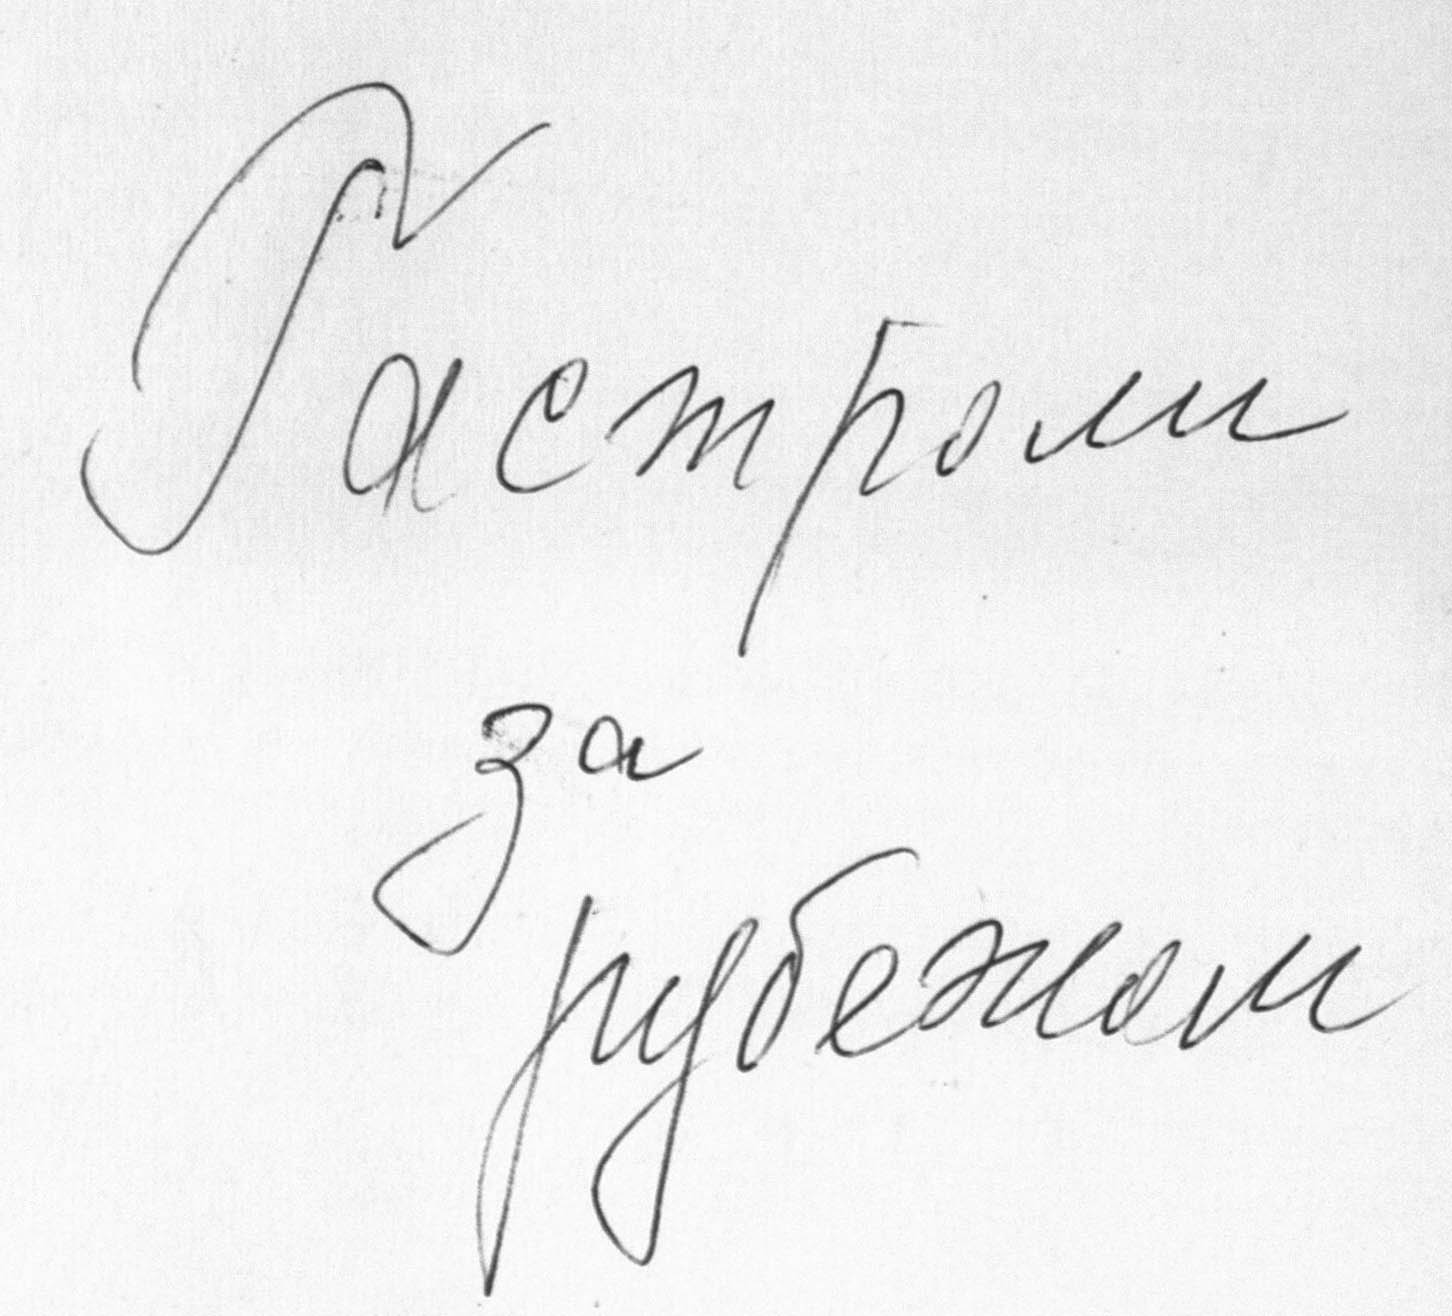 Гастроли
за
рубежом